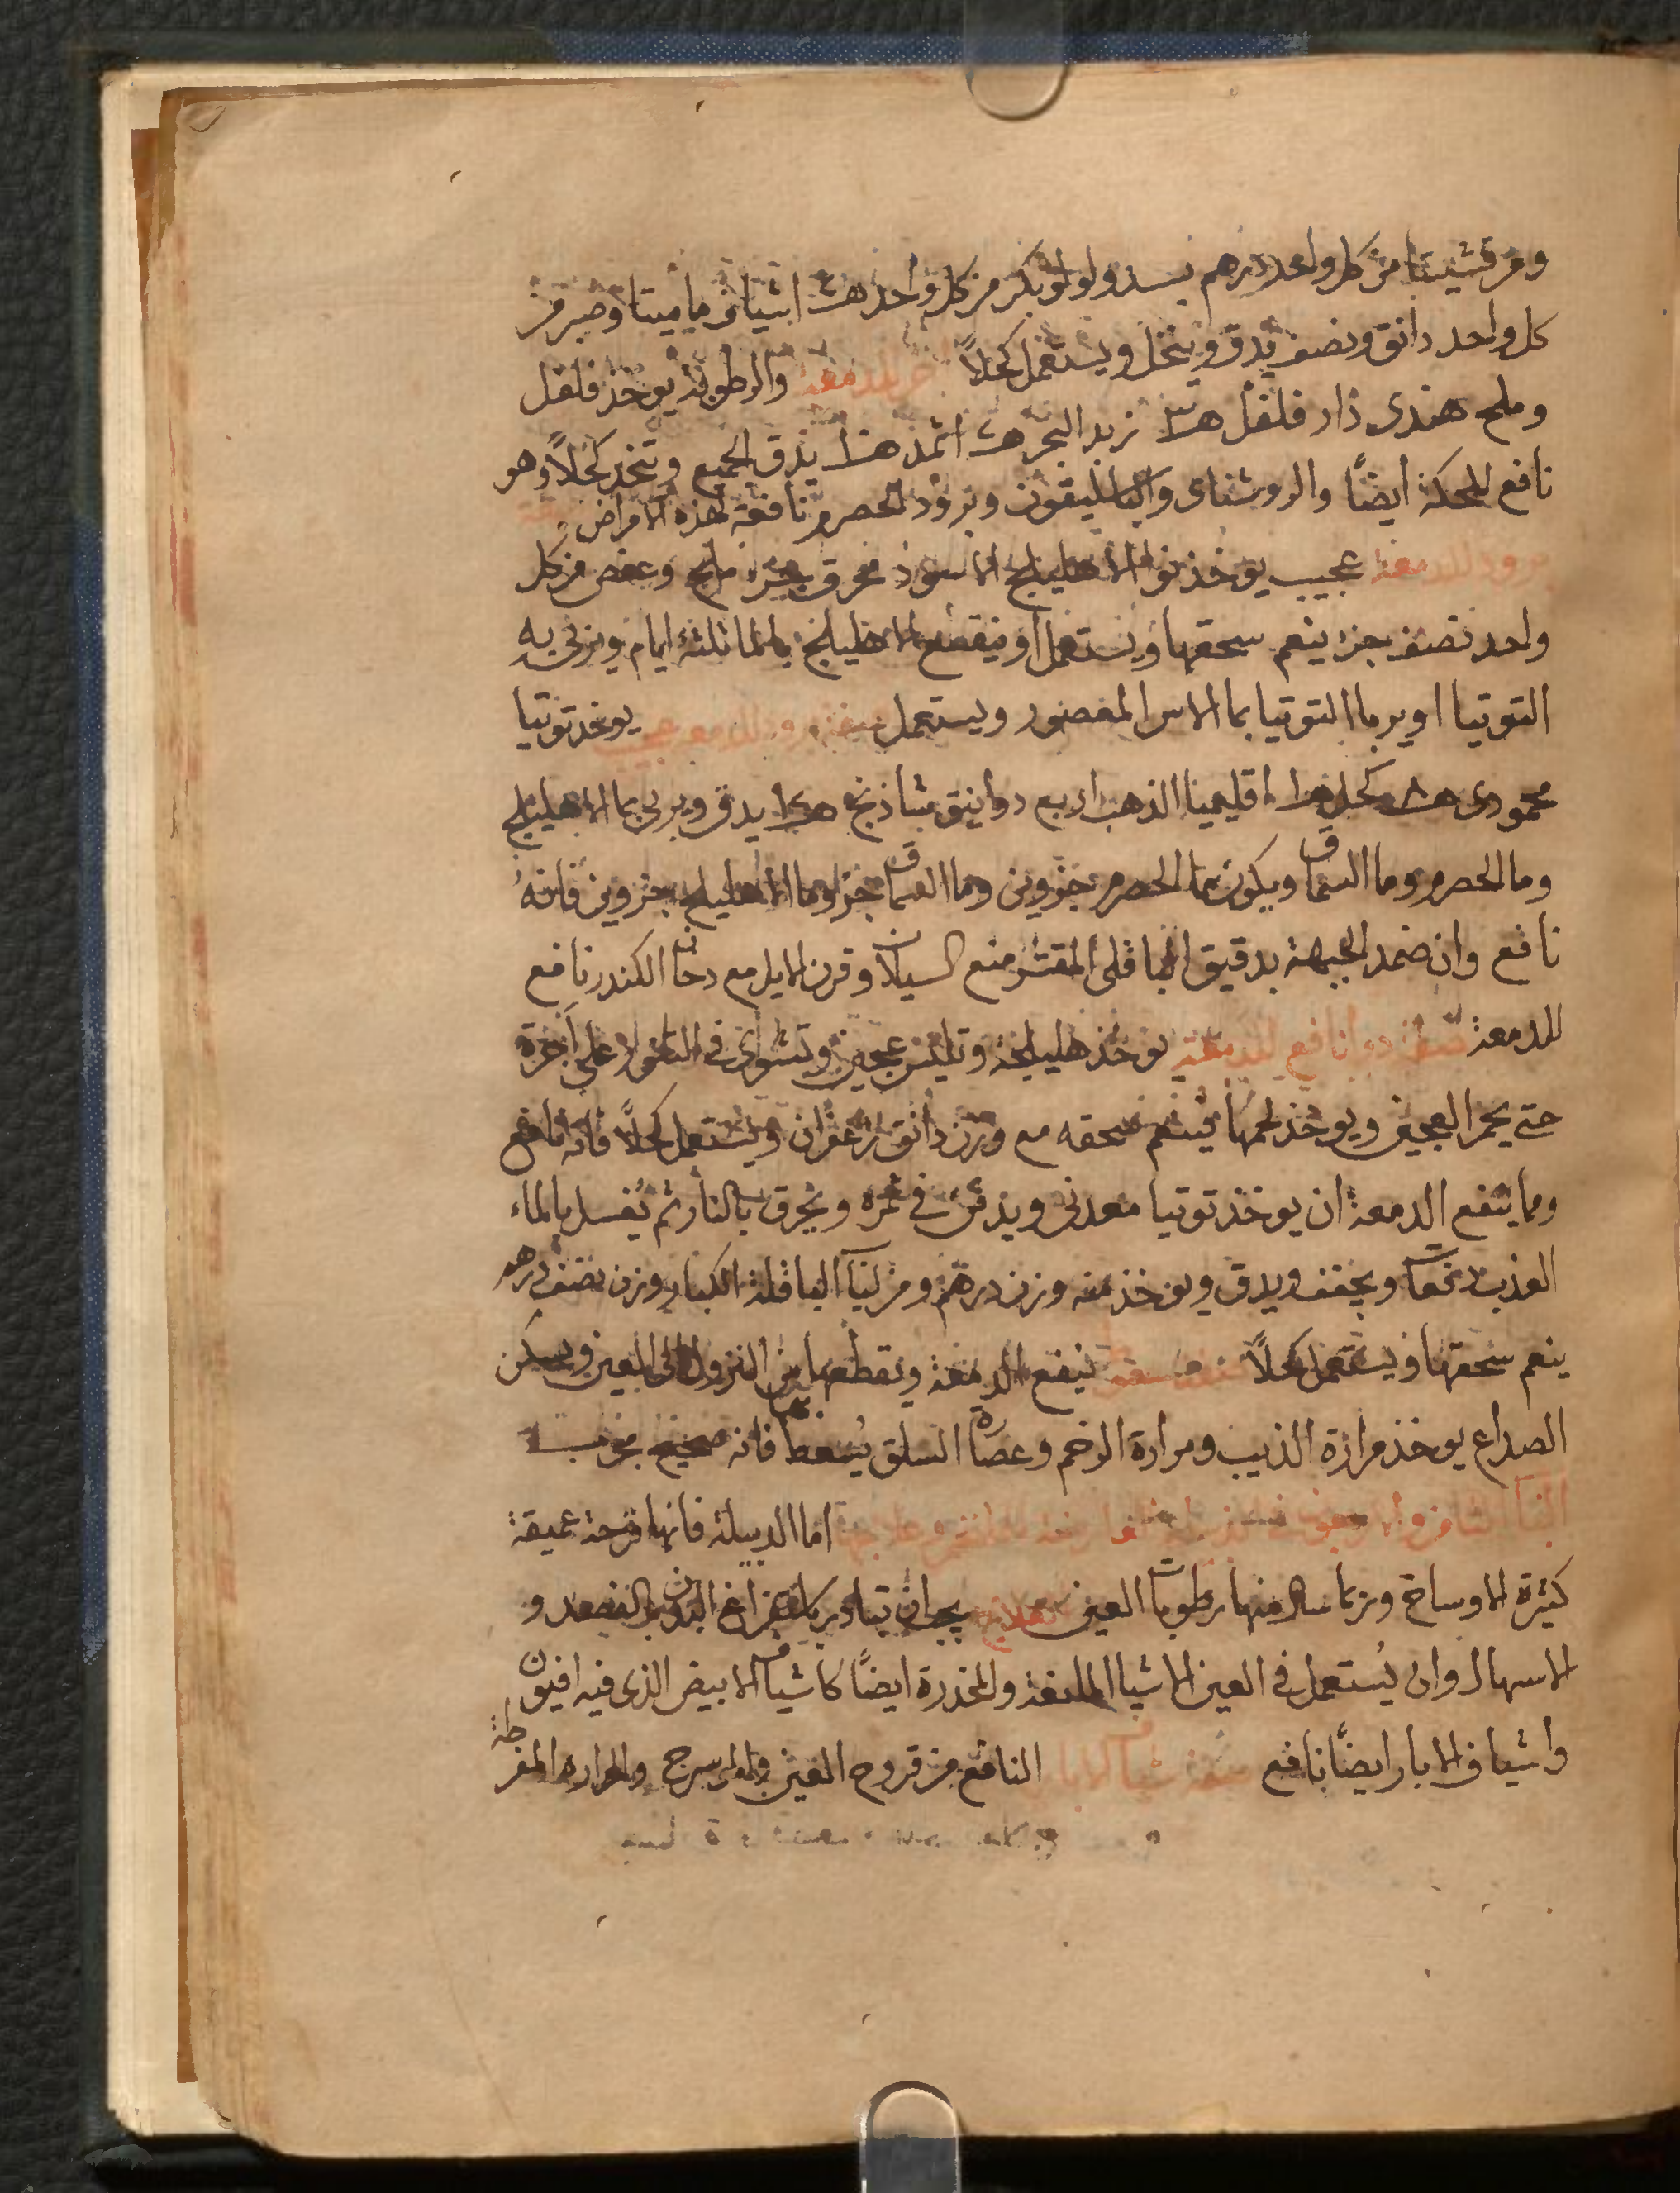 ومرقشيثا من كل واحد درهم بسد ولولو بكر من كل واحد اشياف ماميتا وصبر من
كل واحد دانق ونصف يدق وينخل ويستعمل كحلاً للدمعة والرطوبة يوخذ فلفل
وملح هندى دار فلفل زبد البحر اثمد يدق الجميع وتتخذ كحلاً وهو
نافع للحكة ايضًا والروشناى والباسليقون وبرود الحصرم نافعة لهذه الامراض
برود للدمعة عجيب يوخذ نوا الاهليلج الاسود محرق جزء ملح وعفص من كل
واحد نصف جزء ينعم سحقها ويستعمل او ينقع الاهليلج بالما ثلثة ايام ويربى به
التوتيا او يربا التوتيا بما الاس المعصور ويستعمل صفة برود للدمعة عجيب يوخذ توتيا
محمودى كحل اقليميا الذهب اربع دوانيق شاذنج يدق ويربى بما الاهليلج
وما الحصرم وما السماق ويكون ما الحصرم جزوين وما السماق جزا وما الاهليلج جزوين فانه
نافع وان ضمد الجبهة بدقيق الباقلى المقشر منع السيلان وقرن الايل مع دخان الكندر نافع
للدمعة صفة دوا نافع للدمعة يوخذ هليلجة وتلبس عجين وتشوى فى التنور على آجرة
حتى يحمر العجين ويوخذ لحمها فينعم سحقه مع وزن دانق زعفران ويستعمل كحلاً فانه نافع
ومما ينفع الدمعة ان يوخذ توتيا معدنى ويدفن فى تمره ويحرق بالنار ثم تغسل بالماء
العذب ويجفف ويدق ويوخذ منه وزن درهم ومن الباقلة الكبار وزن نصف درهم
ينعم سحقها ويستعمل كحلاً صفة سعوط ينفع الدمعة ويقطعها من النزول الى العين ويسكن
الصداع يوخذ مرارة الذيب ومرارة الرخم وعصارة السلق يُسعط فانه صحيح مجرب
الباب الثامن والاربعون اما الدبيلة فانها قرحة عميقة
كثيرة الاوساخ وربما سال منها رطوبات العين العلاج يجب ان تبادر باستفراغ البدن بالفصد و
الاسهال وان يُستعمل فى العين الاشيا الملينة والمخدرة ايضًا كاشياف الابيض الذى فيه افيون
واشياف الابار ايضًا نافع صفة شياف الابار النافع من قروح العين والمورسرج والحرارة المفرطة